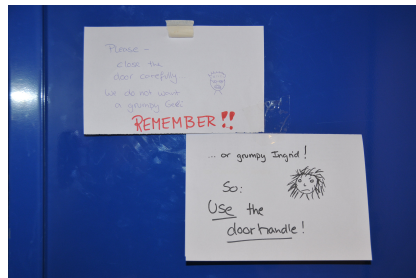 Please -
close the
door carefully
We do not want
a grumpy
REMEMBER!!
... or grumpy Ingrid!
So:
Use the
door handle!